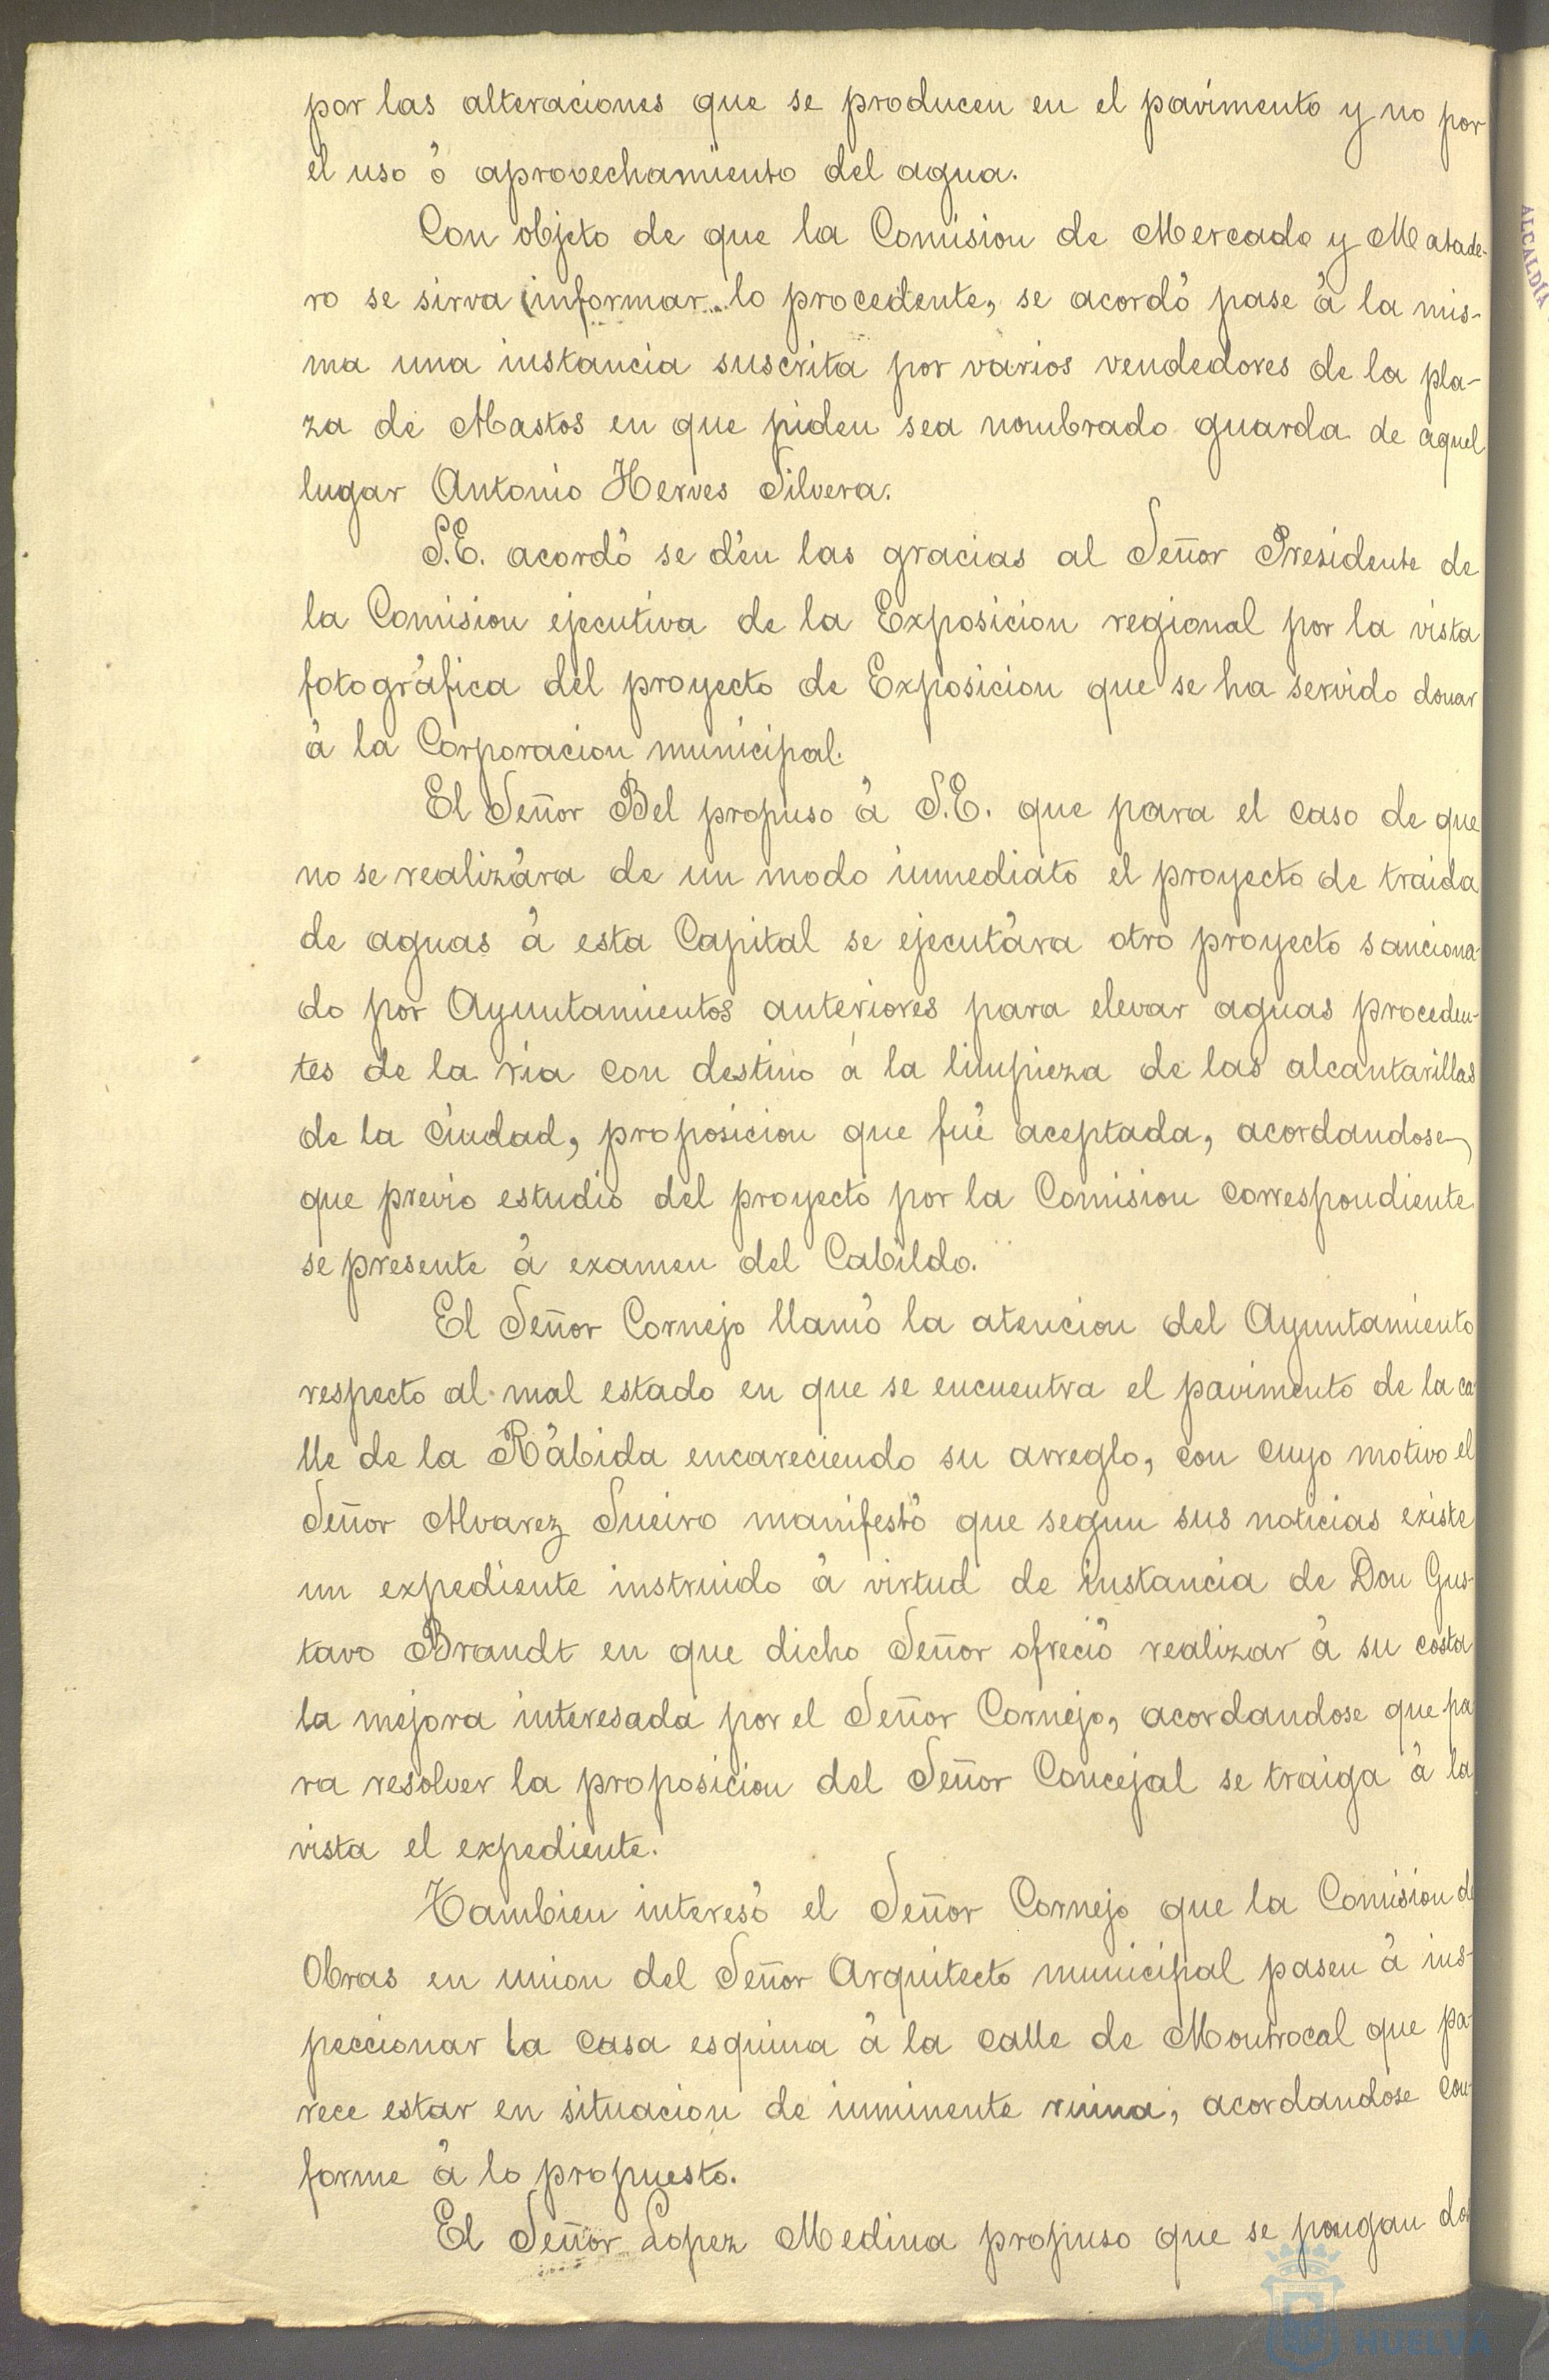 por las alteraciones que se producen en el pavimento y no por
el uso ó aprovechamiento del agua.
Con objeto de que la Comision de Mercado y Matade-
ro se sirva informar lo procedente, se acordó pase á la mis-
ma una instancia suscrita por varios vendedores de la pla-
za de Abastos en que piden sea nombrado guarda de aquel
lugar Antonio Herves Silvera.
S.E. acordó se dén las gracias al Señor Presidente de
la Comision ejecutiva de la Exposicion regional por la vista
fotográfica del proyecto de Exposicion que se ha servido donar
á la Corporacion municipal.
El Señor Bel propuso á S.E. que para el caso de que
no se realizára de un modo inmediato el proyecto de traida
de aguas á esta Capital se ejecutára otro proyecto sanciona-
do por Ayuntamientos anteriores para elevar aguas proceden-
tes de la ria con destino á la limpieza de las alcantarillas
de la Ciudad, proposicion que fué aceptada, acordandose
que previo estudio del proyecto por la Comision correspondiente
se presente á examen del Cabildo.
El Señor Cornejo llamó la atencion del Ayuntamiento
respecto al mal estado en que se encuentra el pavimento de la ca-
lle de la Rábida encareciendo su arreglo, con cuyo motivo el
Señor Alvarez Sueiro manifestó que segun sus noticias existe
un expediente instruido á virtud de instancia de Don Gus-
tavo Brandt en que dicho Señor ofreció realizar á su costa
la mejora interesada por el Señor Cornejo, acordandose que pa
ra resolver la proposicion del Señor Concejal se traiga á la
vista el expediente.
Tambien interesó el Señor Cornejo que la Comision de
Obras en union del Señor Arquitecto municipal pasen á ins-
peccionar la casa esquina á la calle de Montrocal que pa-
rece estar en situacion de inminente ruina, acordandose con-
forme á lo propuesto.
El Señor Lopez Medina propuso que se pongan dos
ALCALDÍA
HUELVA